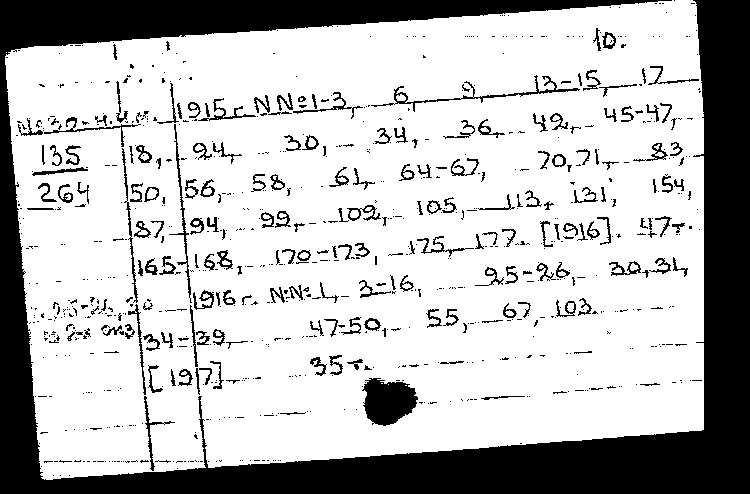 10.
1915 г. NN: 1-3, 6, 9, 13-15, 17
135 18, 24, 30, 34, 36, 42, 45-47,
264 50, 56, 58, 61, 64-67, 70,71, 83,
87, 94, 99, 102, 105, 113, 131, 154,
165-168, 170-173, 175, 177. [1916]. 47т.
1916 г. N:N: 1, 3-16, 25-26, 30,31,
34-39, 47-50, 55, 67, 103.
[197] 35т.